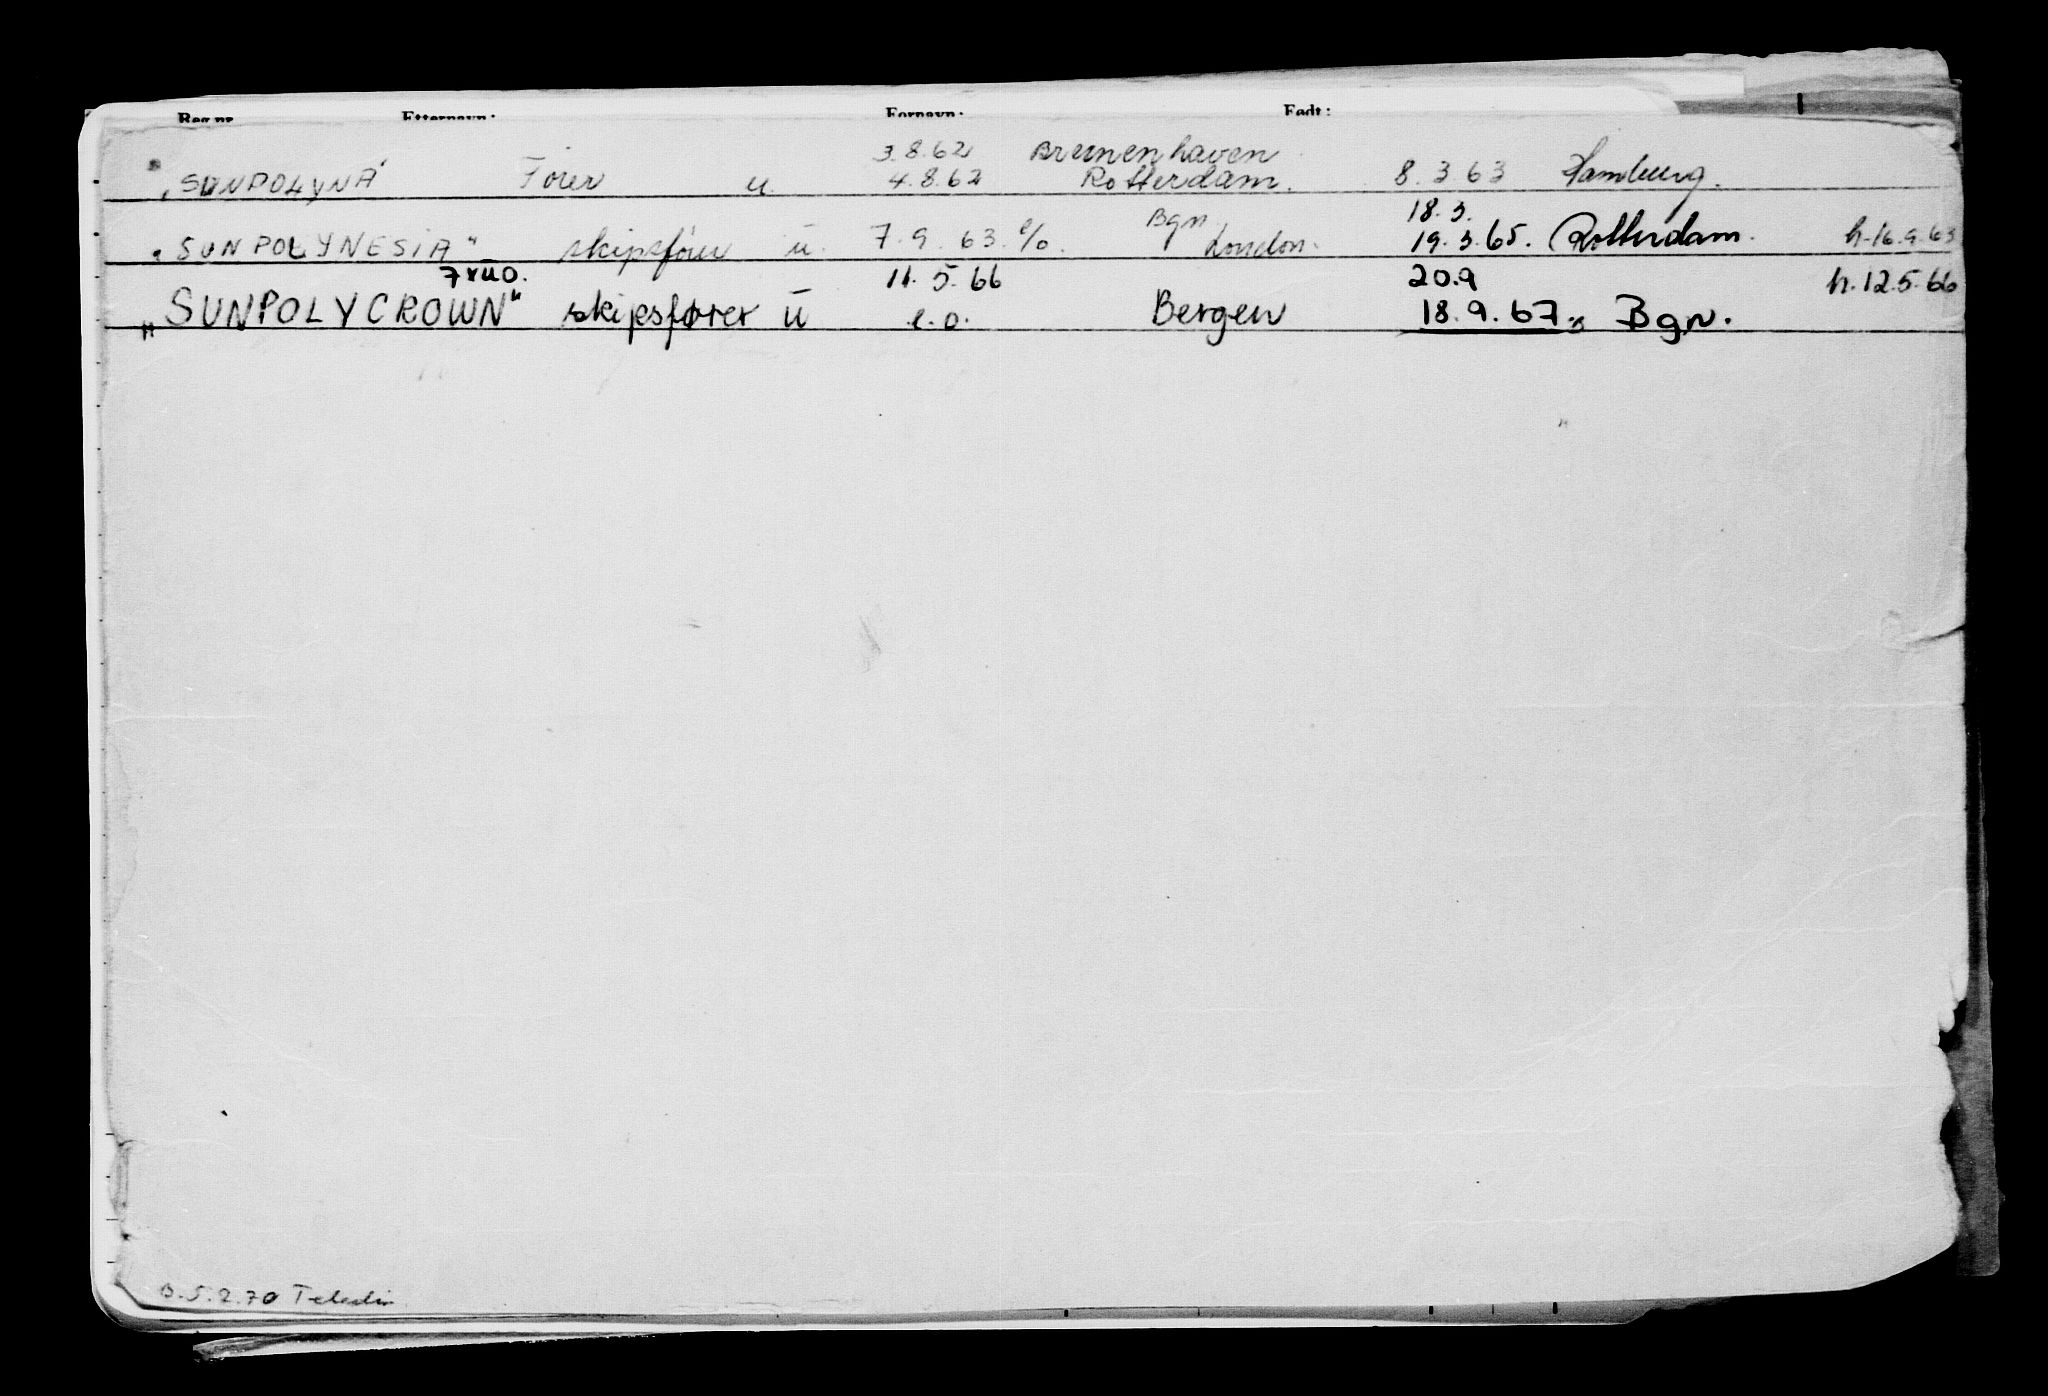 Reg.nr. Etternavn: Fornavn: Født:
3.8.62 Bremenhaven
"SUNPOLYNA" Fører u. 4.8.62 Rotterdam. 8.3 63 Hamburg.
Bgn 18.3.
"SUNPOLYNESIA" skipsfører u. 7.9.63. e/o. London. 19.3.65. Rotterdam. h.16.9.63
7xu0. 11.5.66 20.9 h.12.5.66
"SUNPOLYCROWN" skipsfører u e.o. Bergen 18.9.67. Bgn.
5.2.70